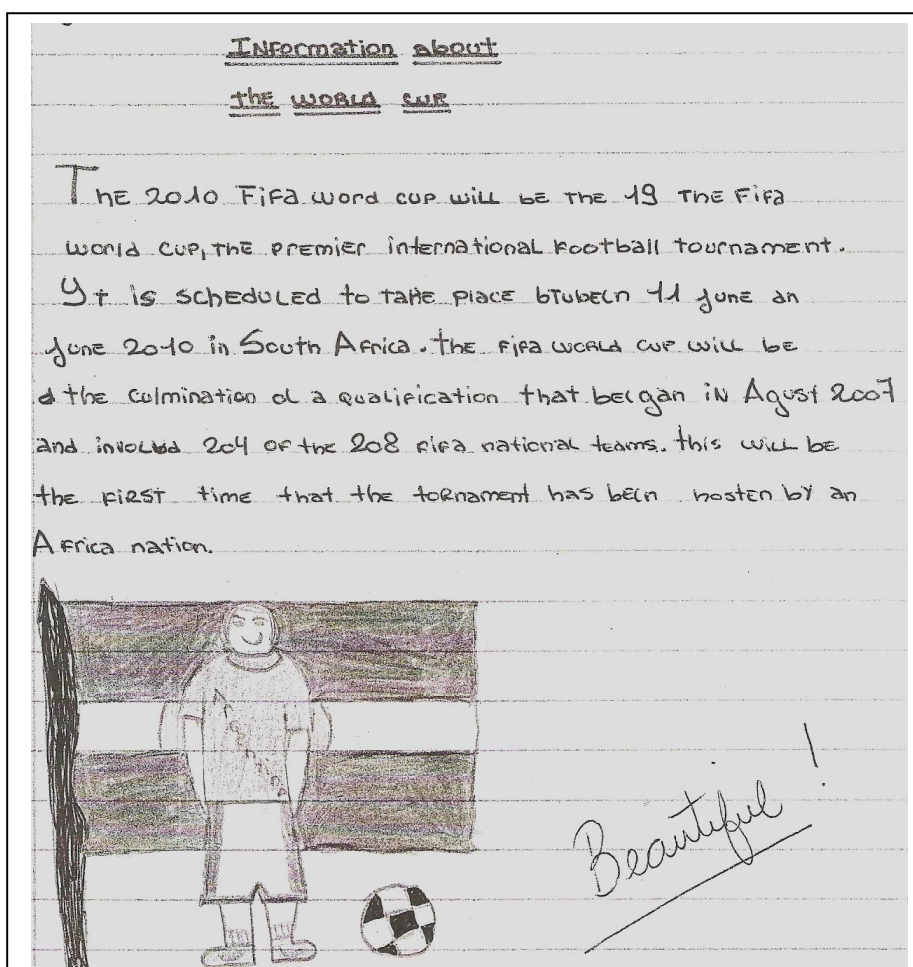 Information about
the world cup
The 2010 Fifa word cup will be the 19 the Fifa
world cup, the premier international football tournament.
Yt is scheduled to take place btubeen 11 june an
june 2010 in South Africa. the fifa world cup will be
d the culmination of a qualification that belgan in Agust 2007
and involved 204 of the 208 fifa national teams. this will be
the first time that the tornament has been hosten by an
Africa nation.
Beautiful!